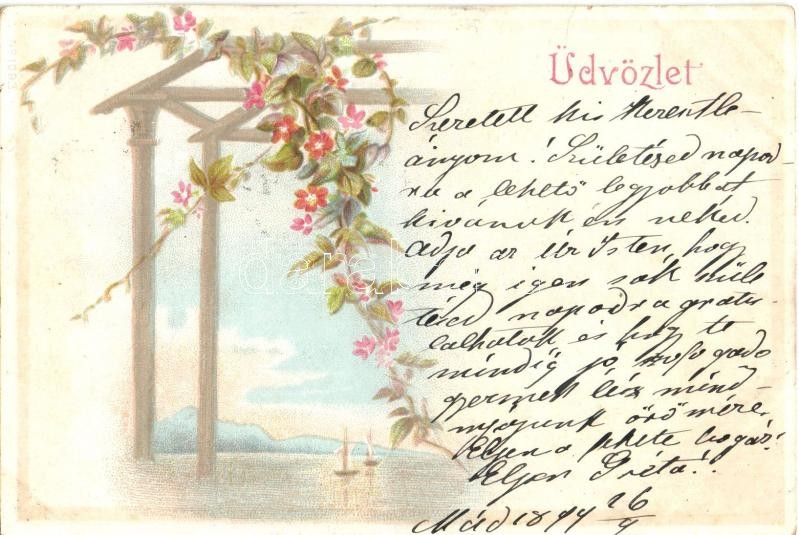 Üdvözlet
Szeretett kis Keresztle-
ányom! Születésed napod-
ra a lehető legjobbat
kivánok én neked.
Adjo az Úr Isten, hogy
még igen sok szüle
tésed napodra gratu-
lalhatok és hogy te
mindig jó szofogado
gyermek lész mind-
nyájunk örömére.
Eljen a fekete bogár!
Eljen Gréta!!
Mád 1899